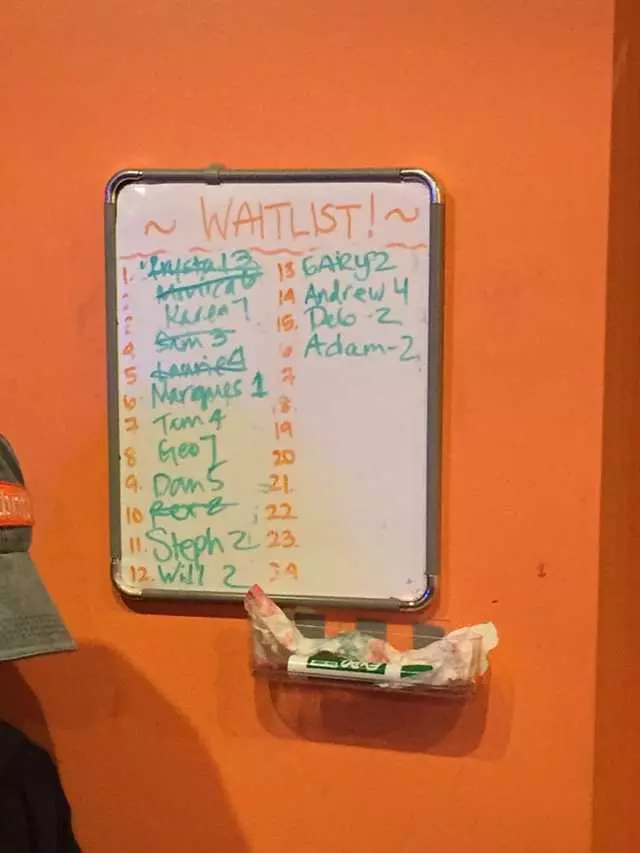 ~ WAITLIST! ~
1. Krystal 3
Monica 6
3 Karen 7
4 Sam 3
5 Laurie 4
6 Marques 1
7 Tom 4
8 Geo 7
9. Dan 5
10
11. Steph 2
12. Will 2
13 GARY 2
14 Andrew 4
15. Deb - 2
6 Adam - 2
7
18.
19
20
21.
22
23.
24
EXPO